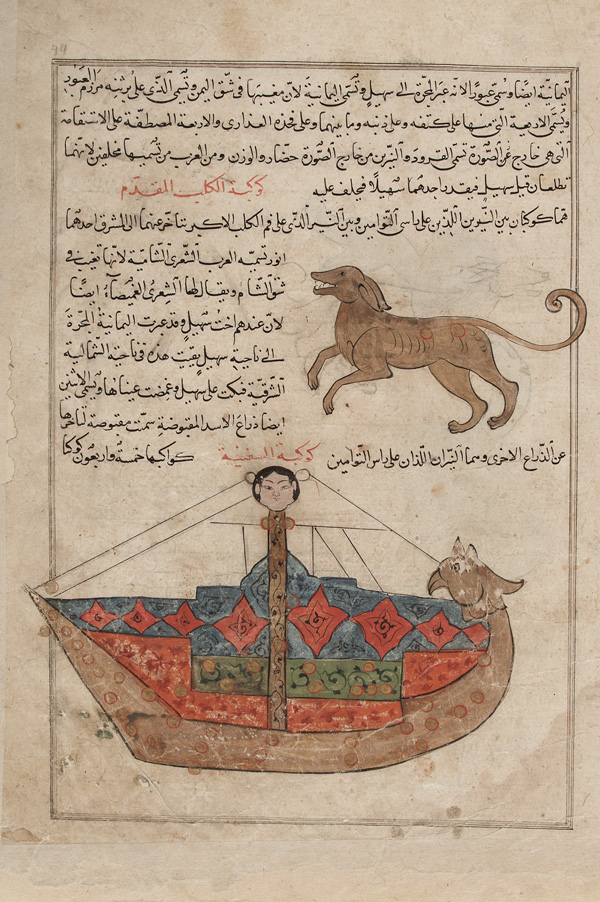 اليمانية ايضا وسمي عبورا لانه عبر المجرة الى سهيل وتسمى اليمانية لان مغيبها في شق اليمن وتسمى الذي على برثنه مرزم العبور
وتسمى الاربعة التي منها على كتفه وعلى ذنبه وما بينهما وعلى فخذه العذارى والاربعة المصطفة على الاستقامة
التي هو خارج عن الصورة تسمى القرود والنيرين من خارج الصورة حضار والوزن ومن العرب من تسميها محلفين لانهما
تطلعان قبل سهيل فيقدر باحدهما سهيلا فيحلف عليه
كوكبة الكلب المقدم
هما كوكبان بين النيرين اللذين على راسي التوامين وبين النير الذي على فم الكلب الاكبر تتاخر عنهما الى المشرق احدهما
انور تسميه العرب الشعرى الشامية لانها تغيب في
شق الشام ويقال لها الشعرى الغميصاء ايضا
لان عندهم اخت سهيل وقد عبرت اليمانية المجرة
الى ناحية سهيل بقيت هذه في ناحية الشمالية
الشرقية فبكت على سهيل وغمضت عيناها وتسمى الاثنين
ايضا ذراع الاسد المقبوضة سمت مقبوضة لتاخرها
عن الذراع الاخرى وهما النيران اللذان على راس التوامين
كوكبة السفينة
كواكبها خمسة واربعون كوكبا